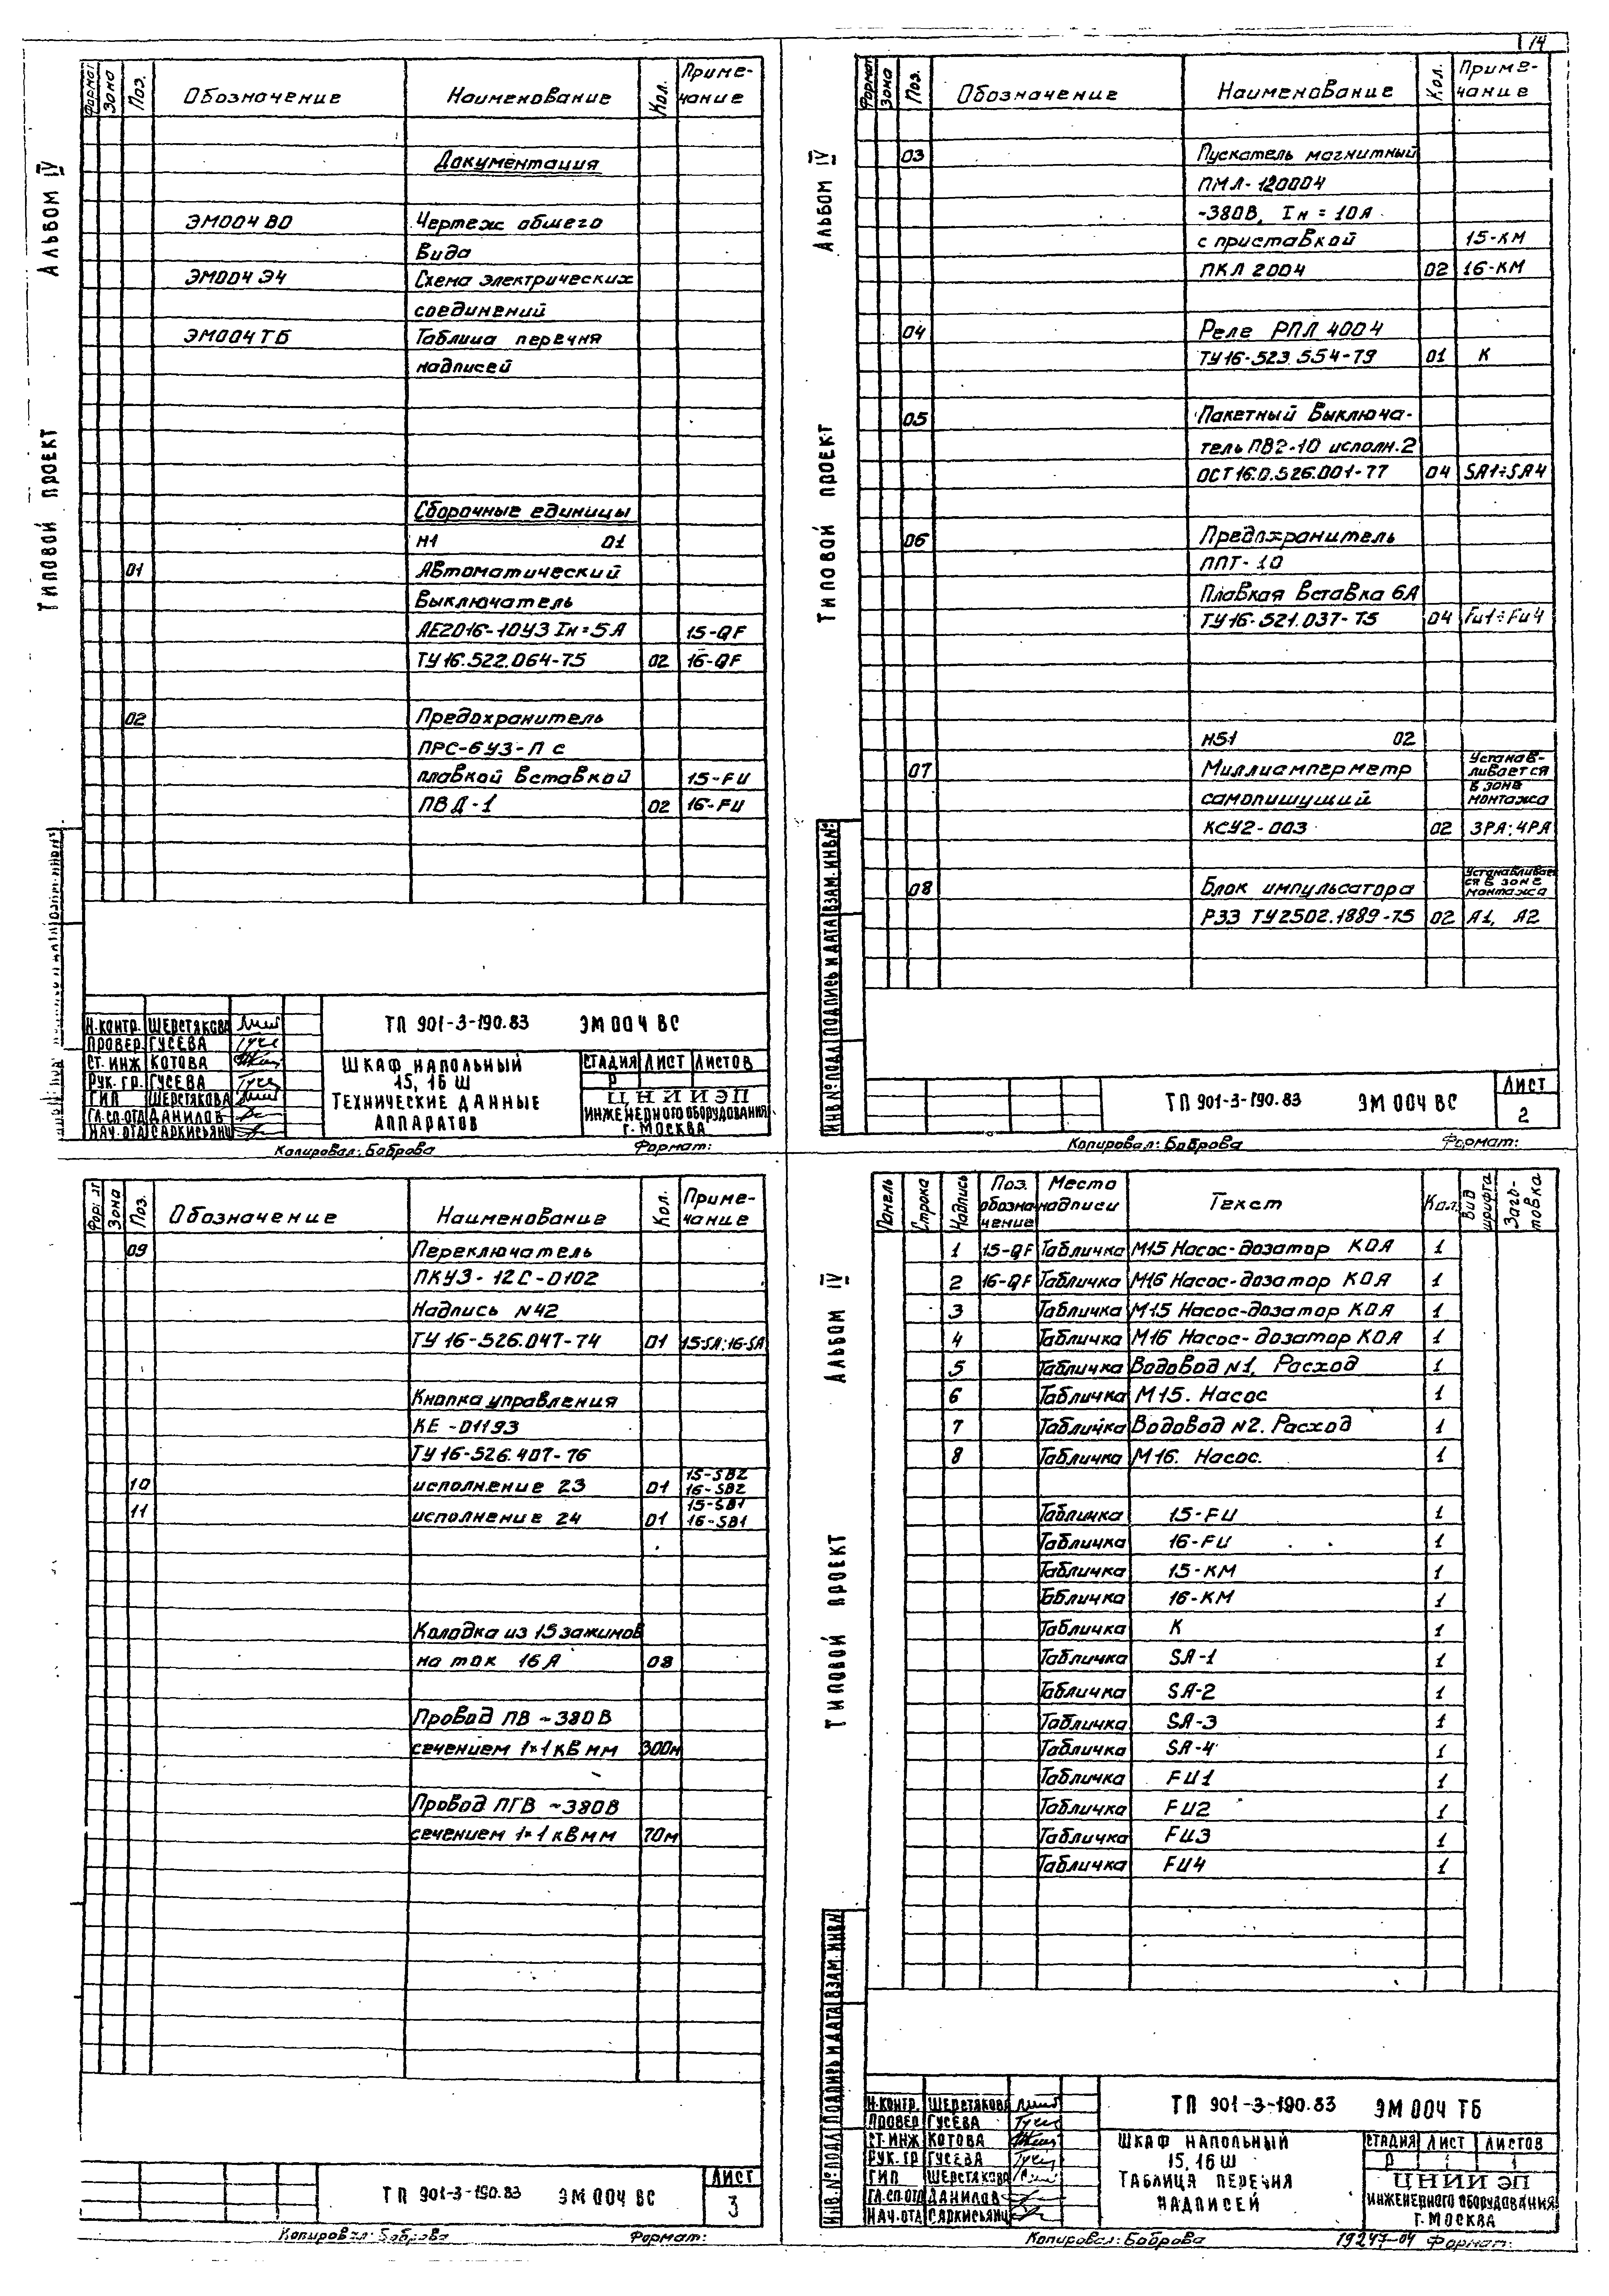 14
Альбом IV
Типовой проект
Формат Зона Поз. Обозначение Наименование Кол. Приме-
чание
Документация
ЭМ004 ВО Чертеж общего
вида
ЭМ004 Э4 Схема электрических
соединений
ЭМ004 ТБ Таблица перечня
надписей
Сборочные единицы
Н1 01
01 Автоматический
выключатель
АЕ2016-10У3 Iн=5А 15-QF
ТУ16.522.064-75 02 16-QF
02 Предохранитель
ПРС-6У3-П с
плавкой вставкой 15-FU
ПВД-1 02 16-FU
ТП 901-3-190.83 ЭМ 004 ВС
Н.КОНТР. ШЕРСТЯКОВА
ПРОВЕР. ГУСЕВА
СТ. ИНЖ КОТОВА
РУК. ГР. ГУСЕВА
ГИП ШЕРСТЯКОВА
ГЛ.СП.ОТД ДАНИЛОВ
НАЧ.ОТД САРКИСЬЯНЦ
ШКАФ НАПОЛЬНЫЙ
15, 16 Ш
ТЕХНИЧЕСКИЕ ДАННЫЕ
АППАРАТОВ
СТАДИЯ ЛИСТ ЛИСТОВ
Р
ЦНИИЭП
ИНЖЕНЕРНОГО ОБОРУДОВАНИЯ
Г. МОСКВА
Копировал: Боброва Формат:
Альбом IV
Типовой проект
Формат Зона Поз. Обозначение Наименование Кол. Приме-
чание
03 Пускатель магнитный
ПМЛ-120004
~380В, Iн = 10А
с приставкой 15-КМ
ПКЛ 2004 02 16-КМ
04 Реле РПЛ 4004
ТУ16-523.554-79 01 К
05 Пакетный выключа-
тель ПВ2-10 исполн.2
ОСТ16.0.526.001-77 04 SA1÷SA4
06 Предохранитель
ППТ-10
Плавкая вставка 6А
ТУ16-521.037-75 04 Fu1÷Fu4
Н51 02
07 Миллиамперметр Устанав-
ливается
самопишущий в зоне
монтажа
КСУ2-003 02 3РА; 4РА
08 Блок импульсатора Устанавливает
ся в зоне
монтажа
РЗЗ ТУ2502.1889-75 02 А1, А2
ИНВ № ПОДЛ ПОДПИСЬ И ДАТА ВЗАМ. ИНВ №
ТП 901-3-190.83 ЭМ 004 ВС
ЛИСТ
2
Копировал: Боброва Формат:
Зона Поз. Обозначение Наименование Кол. Приме-
чание
09 Переключатель
ПКУ3-12С-0102
Надпись N42
ТУ 16-526.047-74 01 15-SA; 16-SA
Кнопка управления
КЕ-01193
ТУ16-526.407-76
10 исполнение 23 01 15-SB2
16-SB2
11 исполнение 24 01 15-SB1
16-SB1
Колодка из 15 зажимов
на ток 16А 08
Провод ПВ ~380В
сечением 1×1 кв мм 300м
Провод ПГВ ~380В
сечением 1×1 кв мм 70м
ТП 901-3-190.83 ЭМ 004 ВС
ЛИСТ
3
Копировал: Боброва Формат:
Альбом IV
Типовой проект
Панель Строка Надпись Поз.
обозна-
чение Место
надписи Текст Кол. Вид
шрифта Заго-
товка
1 15-QF Табличка М15 Насос-дозатор КОА 1
2 16-QF Табличка М16 Насос-дозатор КОА 1
3 Табличка М15 Насос-дозатор КОА 1
4 Табличка М16 Насос-дозатор КОА 1
5 Табличка Водовод N1. Расход 1
6 Табличка М15. Насос 1
7 Табличка Водовод N2. Расход 1
8 Табличка М16. Насос. 1
Табличка 15-FU 1
Табличка 16-FU 1
Табличка 15-КМ 1
Табличка 16-КМ 1
Табличка К 1
Табличка SA-1 1
Табличка SA-2 1
Табличка SA-3 1
Табличка SA-4 1
Табличка FU1 1
Табличка FU2 1
Табличка FU3 1
Табличка FU4 1
ИНВ. № ПОДЛ ПОДПИСЬ И ДАТА ВЗАМ. ИНВ №
ТП 901-3-190.83 ЭМ 004 ТБ
Н.КОНТР. ШЕРСТЯКОВА
ПРОВЕР ГУСЕВА
СТ. ИНЖ КОТОВА
РУК. ГР ГУСЕВА
ГИП ШЕРСТЯКОВА
ГЛ.СП.ОТД ДАНИЛОВ
НАЧ.ОТД САРКИСЬЯНЦ
ШКАФ НАПОЛЬНЫЙ
15, 16 Ш
ТАБЛИЦА ПЕРЕЧНЯ
НАДПИСЕЙ
СТАДИЯ ЛИСТ ЛИСТОВ
Р 1 1
ЦНИИ ЭП
ИНЖЕНЕРНОГО ОБОРУДОВАНИЯ
Г. МОСКВА
Копировал: Боброва 19247-04 Формат: